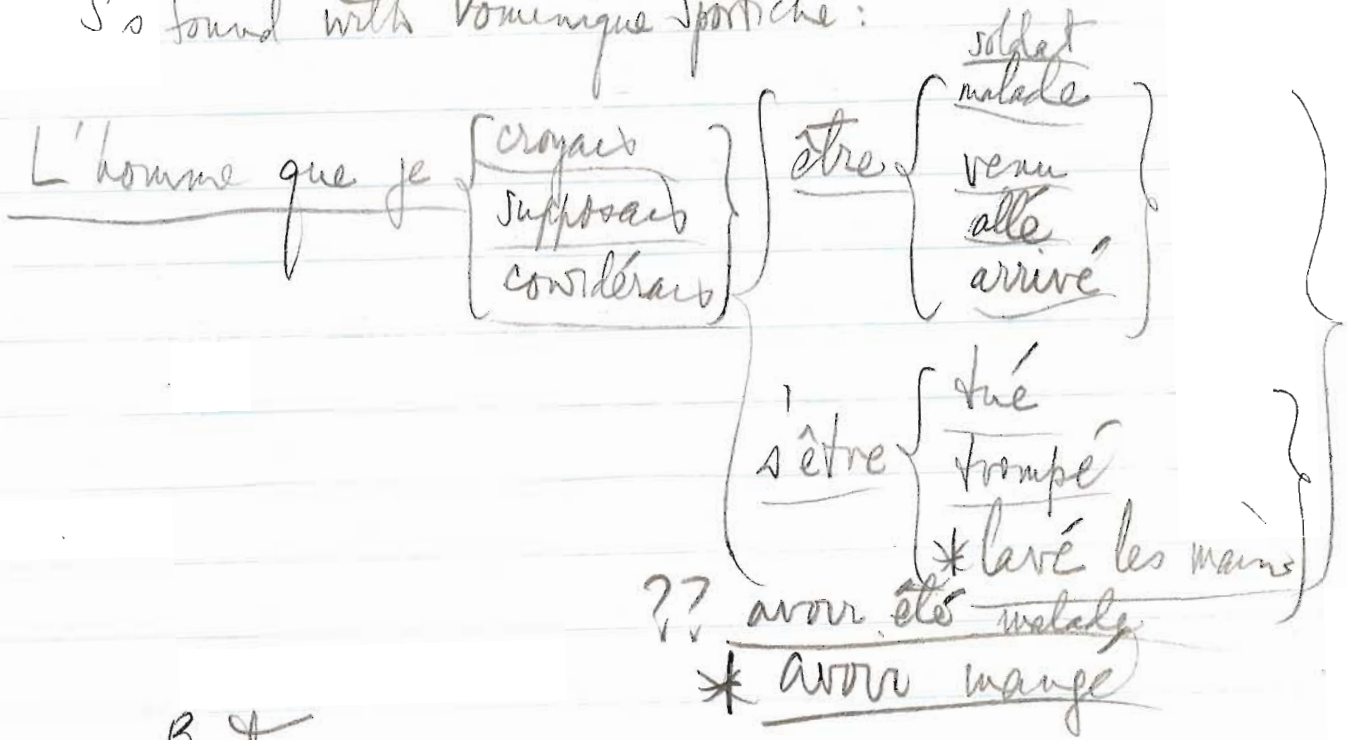 S's found with Dominique Sportiche:
L'homme que je { croyais supposais considérais }
être { soldat malade venu allé arrivé }
s'être { tué trompé *lavé les mains }
?? avoir été malade
* avoir mangé
B